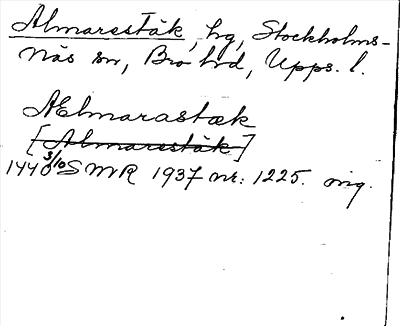 Almarestäk, hg, Stockholms-
Näs sn, Bro hd, Upps. l.
Ælmarastæk
[Almarestäk]
1440 3/10 SMR 1937 nr: 1225. orig.